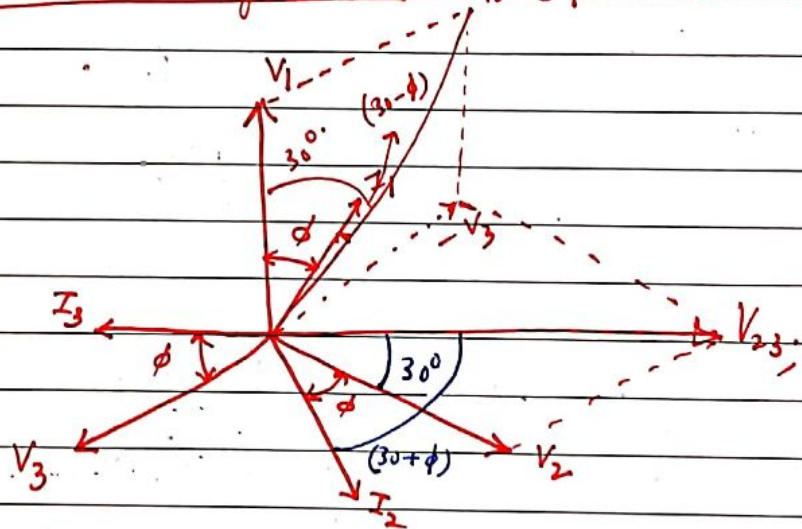 V₁
(30-ϕ)
30°
I₁
ϕ
-V₃
I₃
V₂₃
ϕ
30°
ϕ
V₃
(30+ϕ)
V₂
I₂